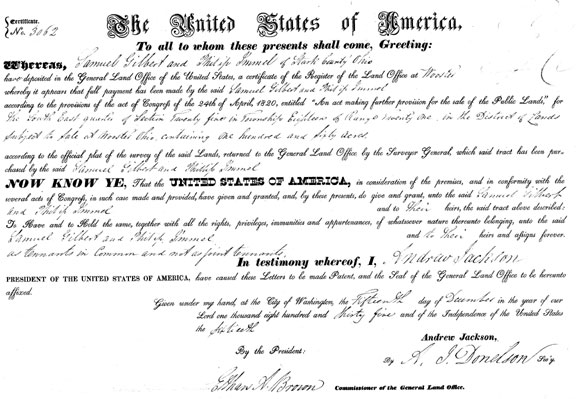 Certificate.
No. 3062
The United States of America,
To all to whom these presents shall come, Greeting:
WHEREAS, Samuel Gilbert and Philip Immel of Stark County Ohio
have deposited in the General Land Office of the United States, a certificate of the Register of the Land Office at Wooster
whereby it appears that full payment has been made by the said Samuel Gilbert and Philip Immel
according to the provisions of the act of Congress of the 24th of April, 1820, entitled "An act making further provision for the sale of the Public Lands," for
the South East quarter of Section Twenty five in Township Eighteen of Range twenty one, in the District of Lands
Subject to sale at Wooster Ohio, containing One hundred and sixty acres.
according to the official plat of the survey of the said Lands, returned to the General Land Office by the Surveyor General, which said tract has been pur-
chased by the said Samuel Gilbert and Philip Immel
NOW KNOW YE, That the UNITED STATES OF AMERICA, in consideration of the premises, and in conformity with the
several acts of Congress, in such case made and provided, have given and granted, and, by these presents, do give and grant, unto the said Samuel Gilbert
and Philip Immel and to Their heirs, the said tract above described:
To Have and to Hold the same, together with all the rights, privileges, immunities and appurtenances, of whatsoever nature thereunto belonging, unto the said
Samuel Gilbert and Philip Immel and to Their heirs and assigns forever.
as tennants in Common and not as joint tennants.
In testimony whereof, I, Andrew Jackson
PRESIDENT OF THE UNITED STATES OF AMERICA, have caused these Letters to be made Patent, and the Seal of the General Land Office to be hereunto
affixed.
Given under my hand, at the City of Washington, the Fifteenth day of December in the year of our
Lord one thousand eight hundred and thirty five and of the Independence of the United States
the Sixtieth
Andrew Jackson,
By the President:
By A. J. Donelson Sec'y.
Ethan A. Brown Commissioner of the General Land Office.